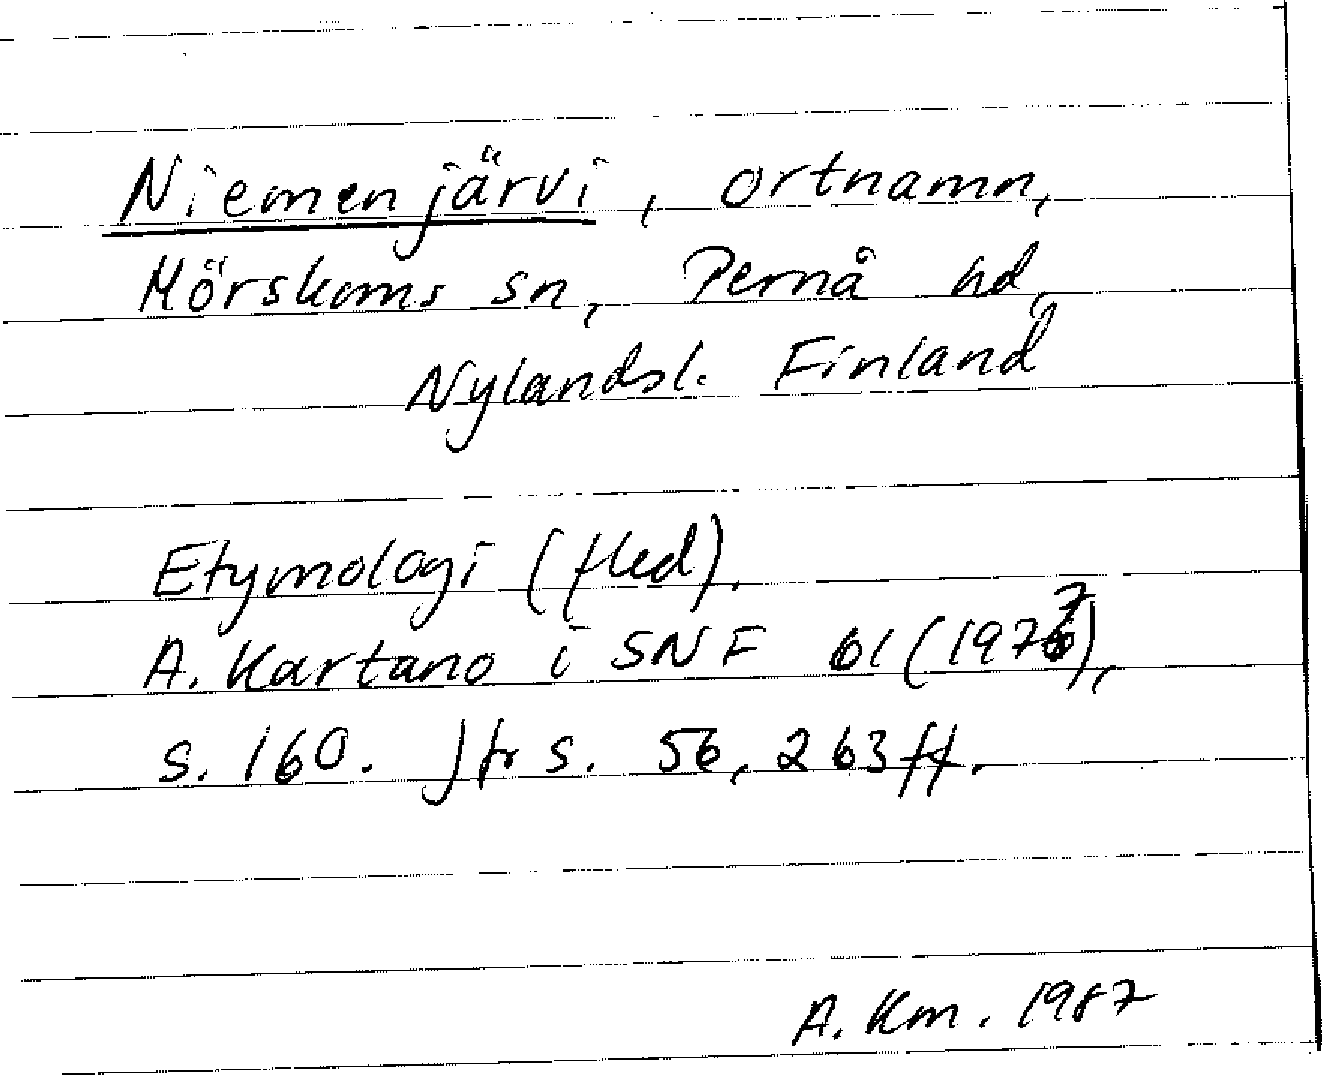 Niemenjärvi, ortnamn,
Mörskoms sn, Pernå hd,
Nylandsl. Finland
Etymologi (fled).
A. Kartano i SNF 61 (1977),
s. 160. Jfr s. 56, 263 ff.
A. Km. 1987